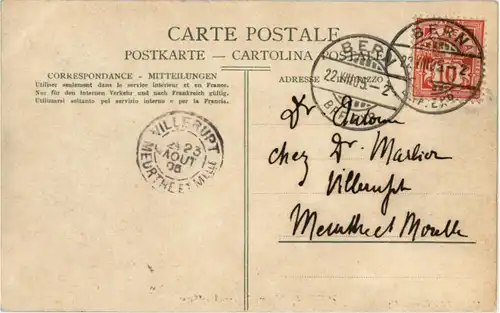 CARTE POSTALE
POSTKARTE — CARTOLINA POSTALE
CORRESPONDANCE - MITTEILUNGEN
Utiliser seulement dans le service intérieur et en France.
Nur für den internen Verkehr und nach Frankreich gültig.
Utilizzarsi soltanto pel servizio interno - per la Francia.
ADRESSE
INDIRIZZO
BERN
22.VIII.05.-2
BERN
22.VIII.05.-2
10
VILLERUPT
23
AOUT
05
MEURTHE ET MLLE
Dr
chez Dr. Marlier
Villerupt
Meurthe et Moselle